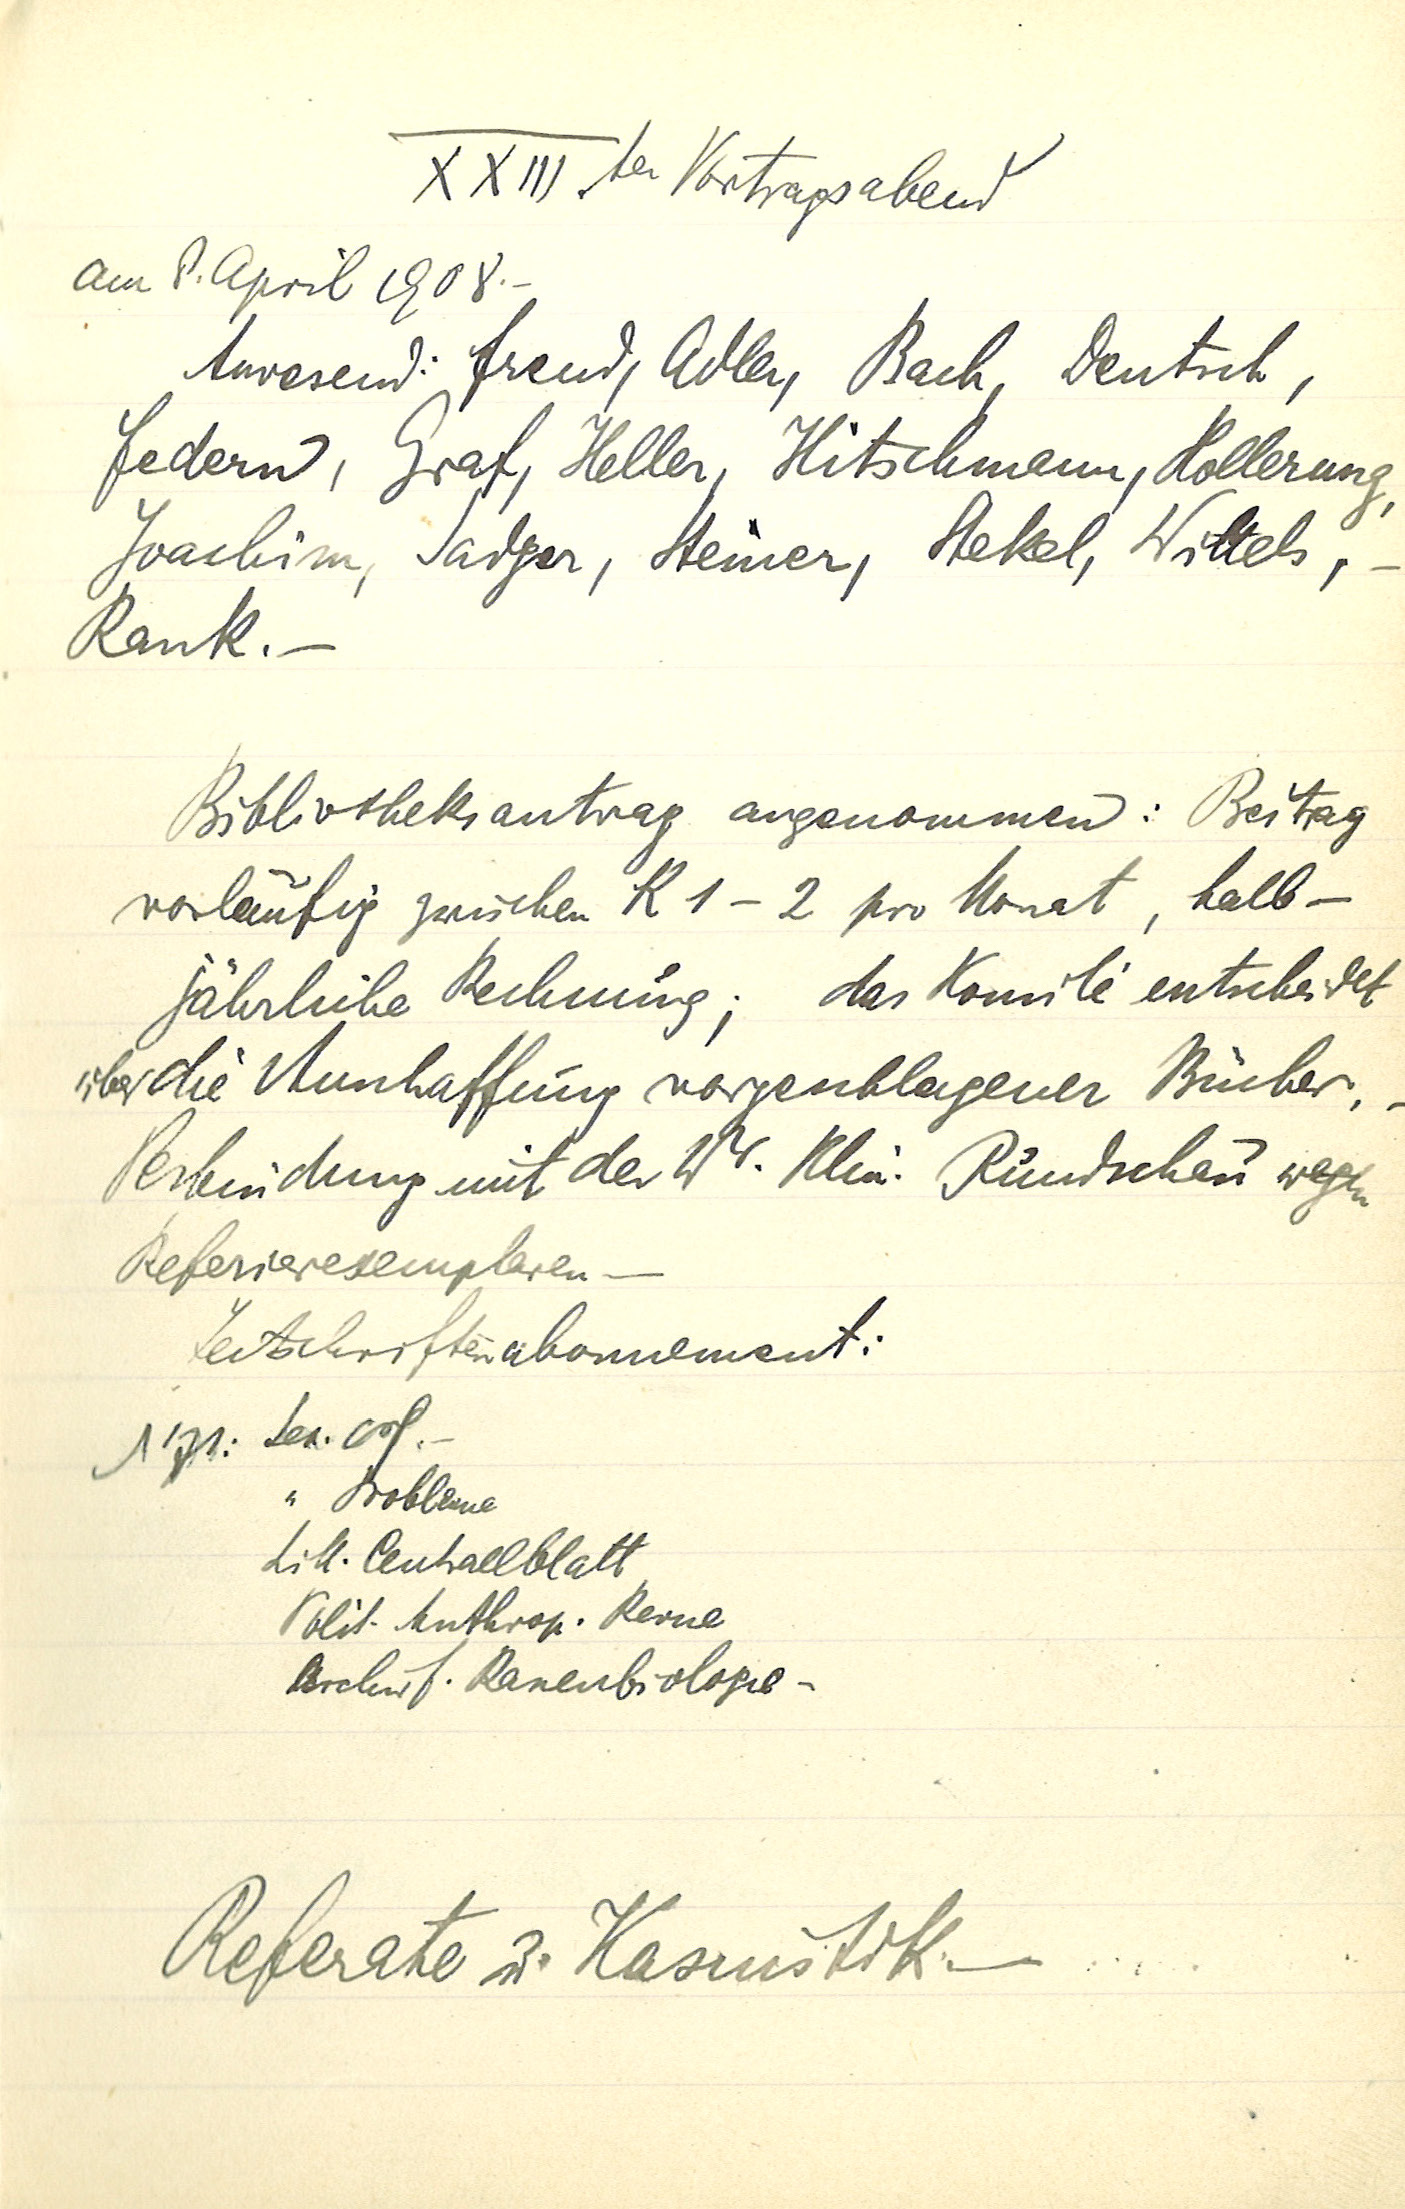 XXIII. ter Vortragsabend
am 8. April 1908.-
Anwesend: Freud, Adler, Bach, Deutsch,
Federn, Graf, Heller, Hitschmann, Hollerung,
Joachim, Sadger, Steiner, Stekel, Wittels, -
Rank. -
Bibliotheksantrag angenommen: Beitrag
vorläufig zwischen K 1-2 pro Monat, halb-
jährliche Rechnung; das Komité entscheidet
über die Anschaffung vorgeschlagener Bücher. -
Verbindung mit der Wr. Klin. Rundschau wegen
Referierexemplaren -
Zeitschriftenabonnement:
Sex.
" Probleme
Litt. Centralblatt
Polit. Anthrop. Revue
Archiv f. Rassenbiologie -
Referate u. Kasuistik. -